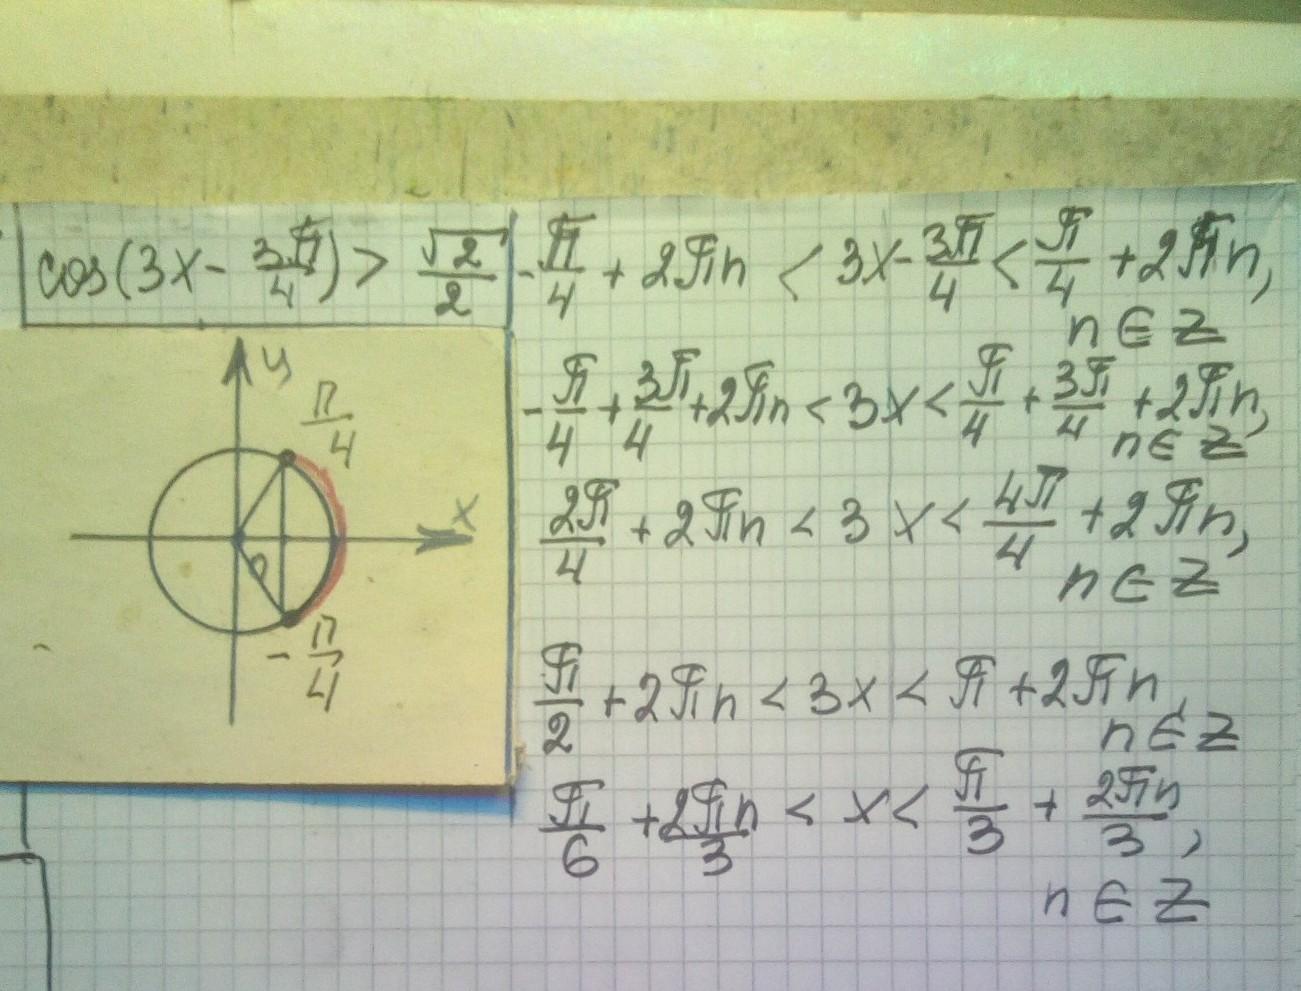 cos(3x - 3π/4) > √2/2
y
π/4
x
-π/4
-π/4 + 2πn < 3x - 3π/4 < π/4 + 2πn,
n ∈ Z
-π/4 + 3π/4 + 2πn < 3x < π/4 + 3π/4 + 2πn,
n ∈ Z
2π/4 + 2πn < 3x < 4π/4 + 2πn,
n ∈ Z
π/2 + 2πn < 3x < π + 2πn,
n ∈ Z
π/6 + 2πn/3 < x < π/3 + 2πn/3,
n ∈ Z